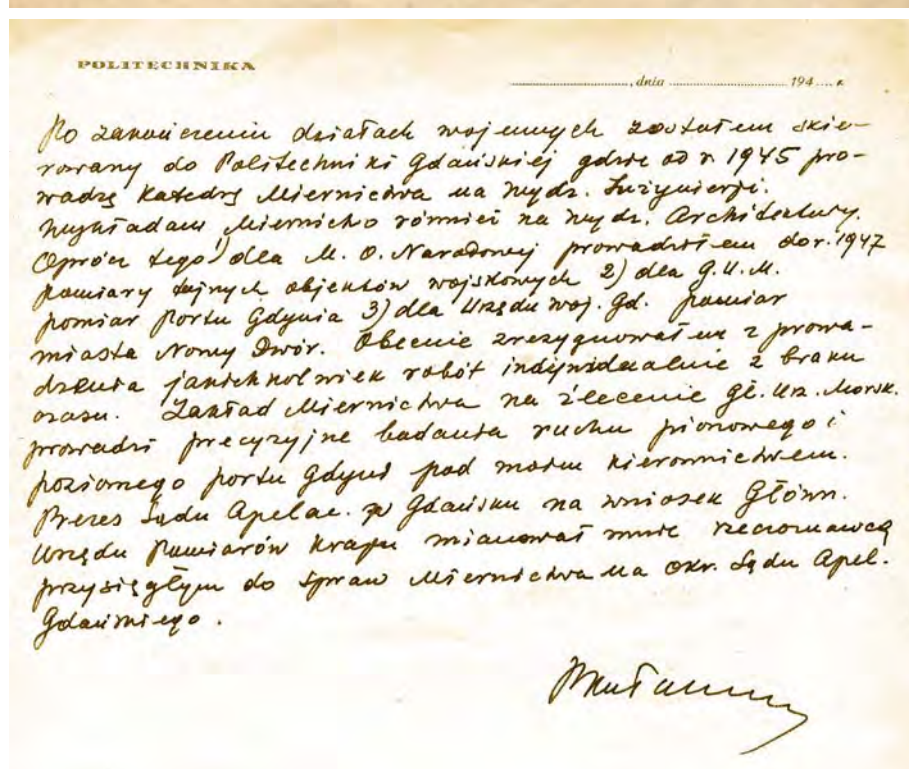 POLITECHNIKA
, dnia 194 r.
Po zakończeniu działach wojennych zostałem skie-
rowany do Politechniki Gdańskiej gdzie od r. 1945 pro-
wadzę Katedrę Miernictwa na wydz. Inżynierji.
Wykładam Miernictwo również na wydz. Architektury.
Oprócz tego 1) dla M. O. Narodowej prowadziłem do r. 1947
pomiary tajnych objektów wojskowych 2) dla G.U.M.
pomiar Portu Gdynia 3) dla Urzędu woj. Gd. pomiar
miasta Nowy Dwór. Obecnie zrezygnowałem z prowa-
dzenia jakichkolwiek robót indywidualnie z braku
czasu. Zakład Miernictwa na zlecenie Gł. Urz. Morsk.
prowadzi precyzyjne badania ruchu pionowego i
poziomego portu Gdynś pod moim kierownictwem.
Prezes Sądu Apelac. w Gdańsku na wniosek Główn.
Urzędu Pomiarów Kraju mianował mnie rzeczoznawcą
przysięgłym do spraw Miernictwa na okr. Sądu Apel.
Gdańskiego.